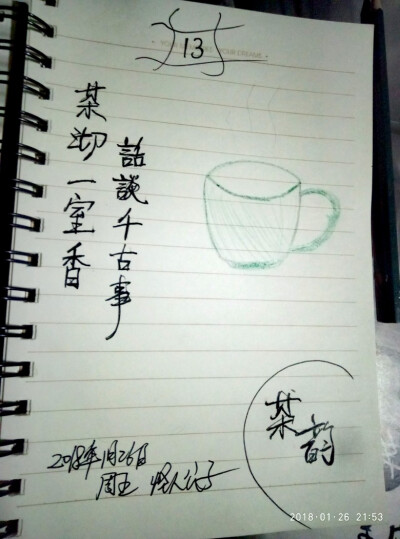 13
茶沏一室香
話談千古事
茶韵
2018年1月26日
周五
2018-01-26 21:53